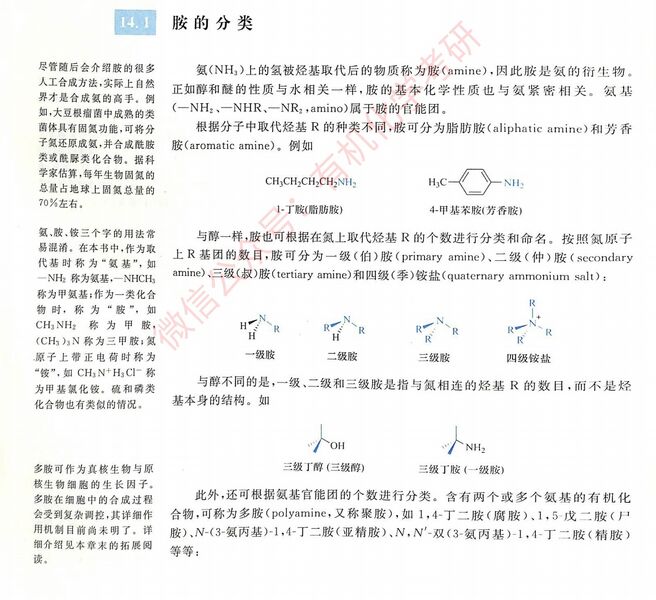 14.1 胺的分类
尽管随后会介绍胺的很多
人工合成方法,实际上自然
界才是合成氨的高手。例
如,大豆根瘤菌中成熟的类
菌体具有固氮功能,可将分
子氮还原成氨,并合成酰胺
类或酰脲类化合物。据科
学家估算,每年生物固氮的
总量占地球上固氮总量的
70%左右。
氨、胺、铵三个字的用法常
易混淆。在本书中,作为取
代基时称为“氨基”,如
—NH₂ 称为氨基,—NHCH₃
称为甲氨基;作为一类化合
物时,称为“胺”,如
CH₃NH₂ 称为甲胺,
(CH₃)₃N 称为三甲胺;氮
原子上带正电荷时称为
“铵”,如 CH₃N⁺H₃Cl⁻ 称
为甲基氯化铵。硫和磷类
化合物也有类似的情况。
多胺可作为真核生物与原
核生物细胞的生长因子。
多胺在细胞中的合成过程
会受到复杂调控,其详细作
用机制目前尚未明了。详
细介绍见本章末的拓展阅
读。
氨(NH₃)上的氢被烃基取代后的物质称为胺(amine),因此胺是氨的衍生物。
正如醇和醚的性质与水相关一样,胺的基本化学性质也与氨紧密相关。氨基
(—NH₂、—NHR、—NR₂,amino)属于胺的官能团。
根据分子中取代烃基 R 的种类不同,胺可分为脂肪胺(aliphatic amine)和芳香
胺(aromatic amine)。例如
CH₃CH₂CH₂CH₂NH₂ H₃C NH₂
1-丁胺(脂肪胺) 4-甲基苯胺(芳香胺)
与醇一样,胺也可根据在氮上取代烃基 R 的个数进行分类和命名。按照氮原子
上 R 基团的数目,胺可分为一级(伯)胺(primary amine)、二级(仲)胺(secondary
amine)、三级(叔)胺(tertiary amine)和四级(季)铵盐(quaternary ammonium salt):
H H N R H R N R R R N R R R N⁺ R R
一级胺 二级胺 三级胺 四级铵盐
与醇不同的是,一级、二级和三级胺是指与氮相连的烃基 R 的数目,而不是烃
基本身的结构。如
OH NH₂
三级丁醇(三级醇) 三级丁胺(一级胺)
此外,还可根据氨基官能团的个数进行分类。含有两个或多个氨基的有机化
合物,可称为多胺(polyamine,又称聚胺),如 1,4-丁二胺(腐胺)、1,5-戊二胺(尸
胺)、N-(3-氨丙基)-1,4-丁二胺(亚精胺)、N,N′-双(3-氨丙基)-1,4-丁二胺(精胺)
等等:
微信公众号:有机化学考研